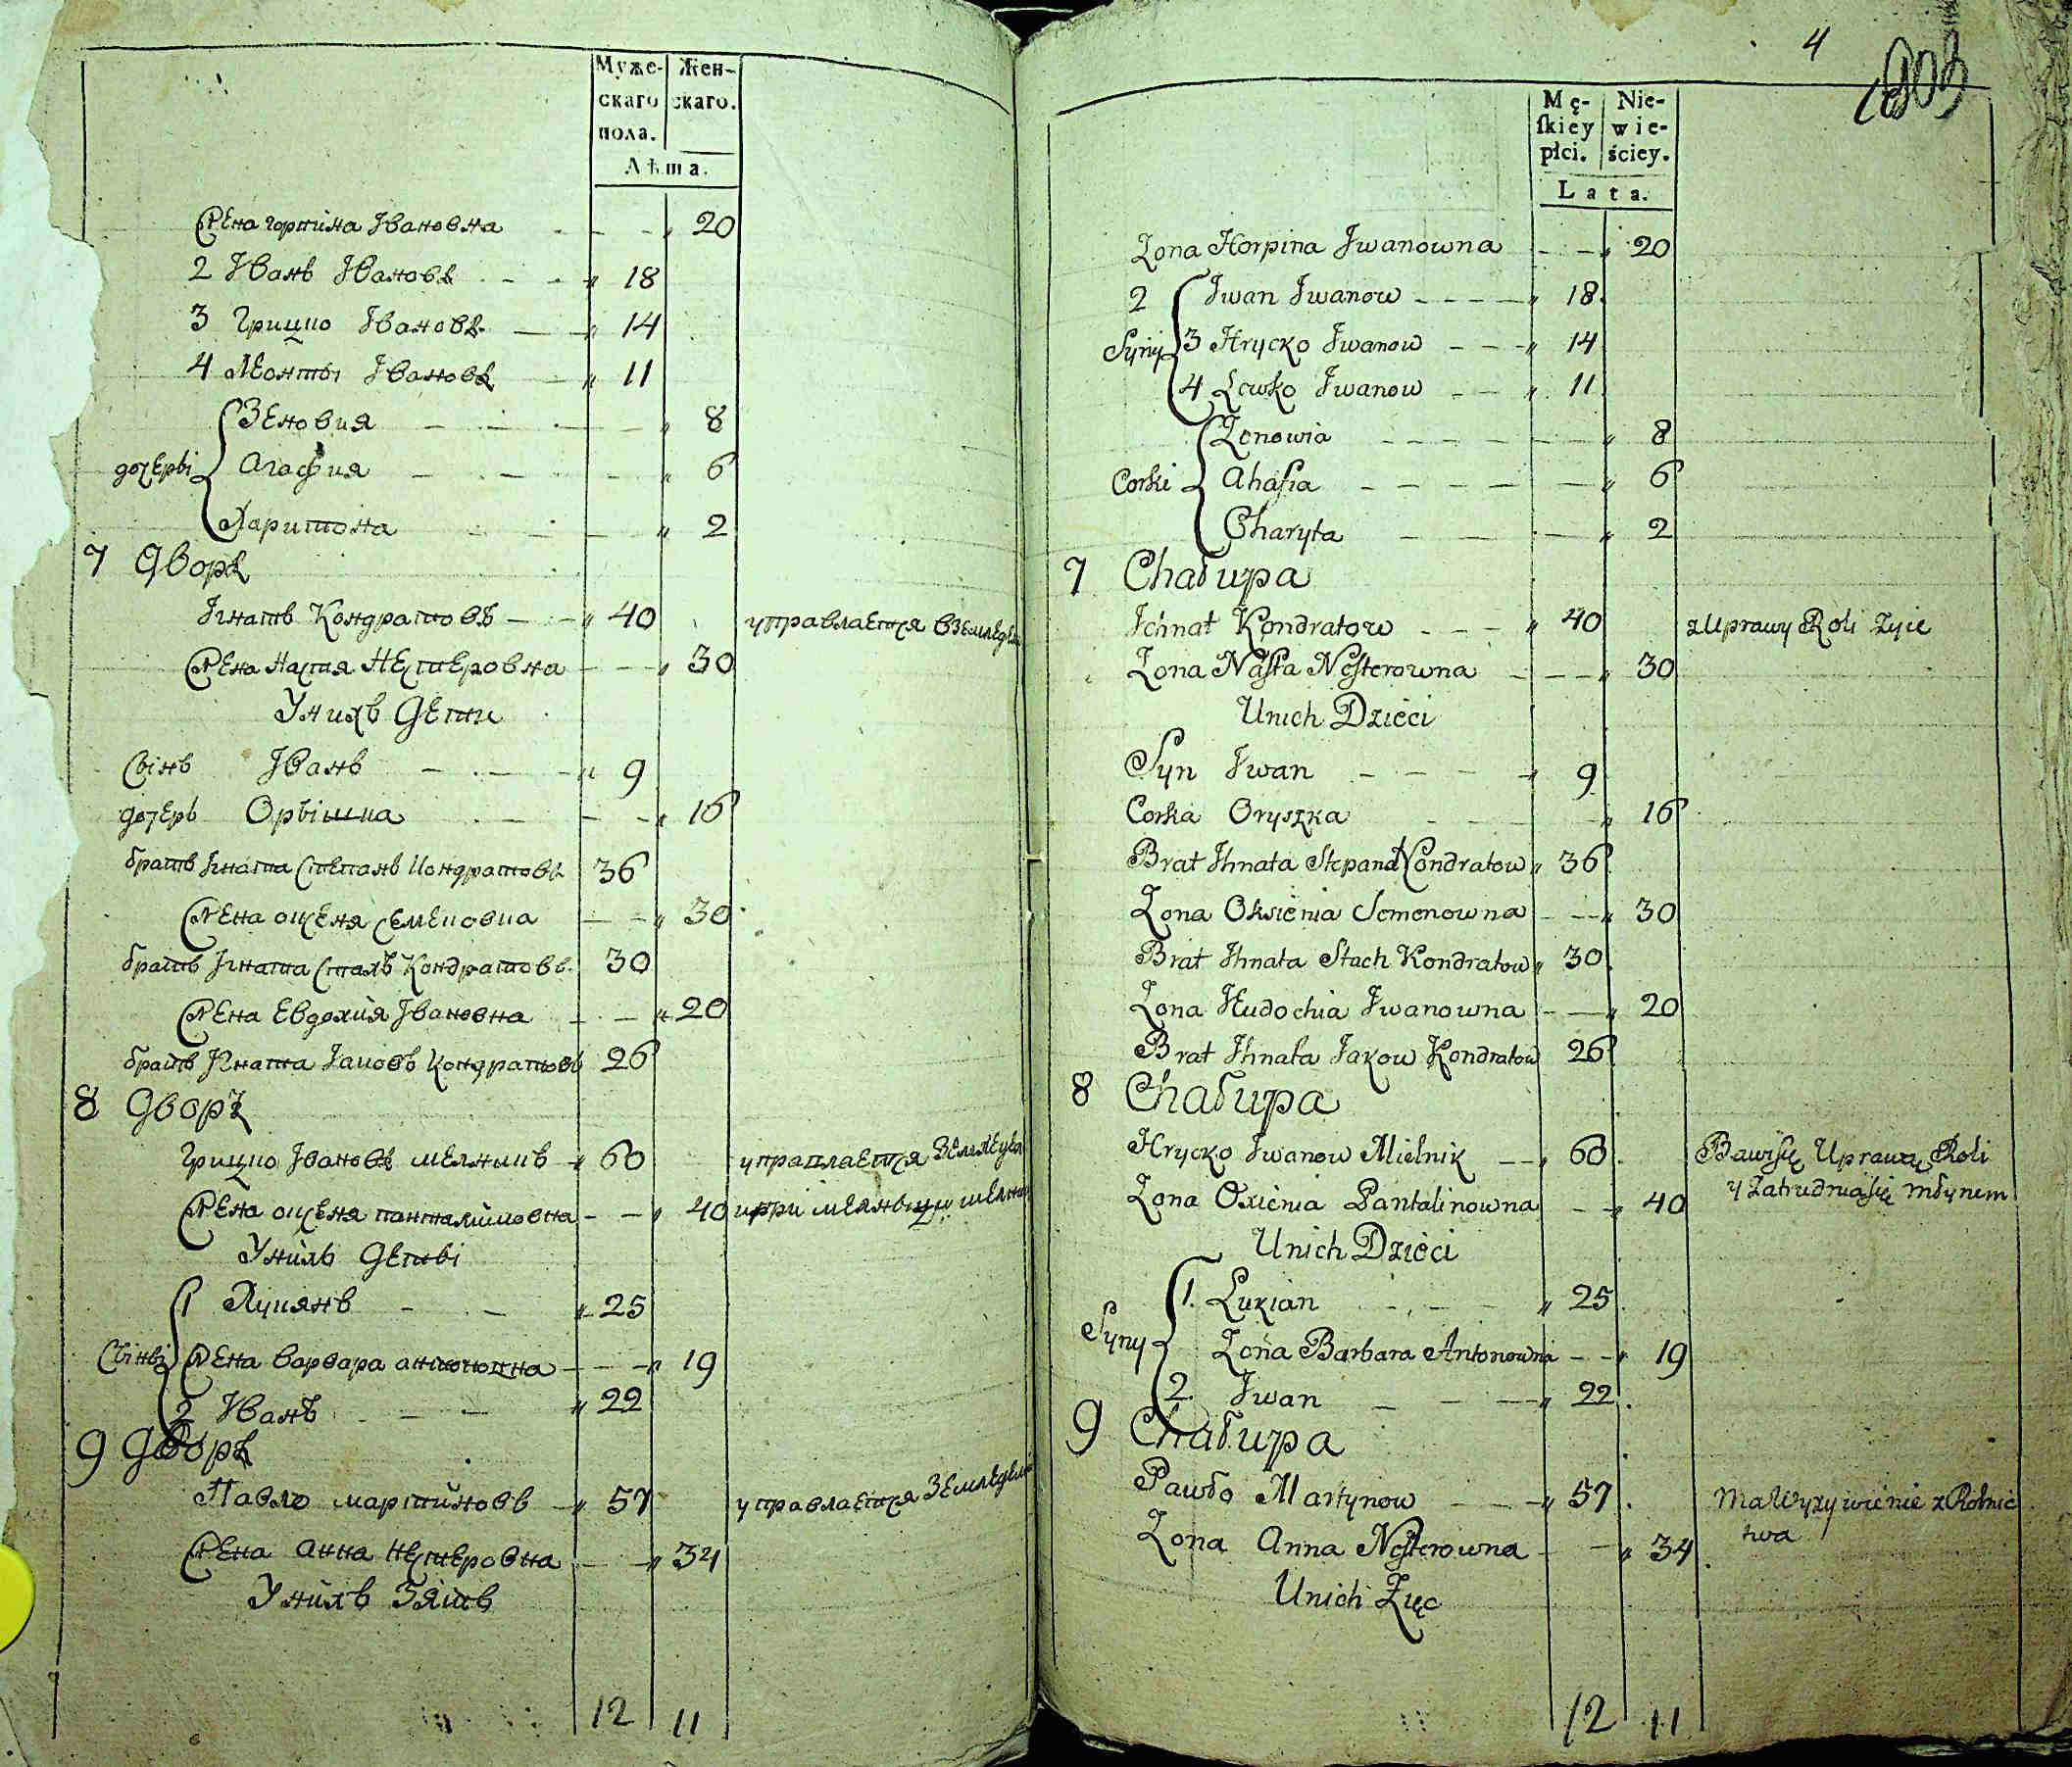 Муже- Жен-
скаго скаго.
пола.
Лѣта.
Жена горпина Ивановна - - " 20
2 Иванъ Ивановъ - - " 18
3 Грицко Ивановъ - - " 14
4 Леонты Ивановъ - " 11
Зеновия - - - " 8
дочерѣ Агафия - - - " 6
Харитона - - " 2
7 Дворъ
Игнатъ Кондратовъ - - " 40 управлается вземлед
Жена Настя Нестеровна - - " 30
Унихъ дети
Сынъ Иванъ - - - " 9
дочерь Орышка - - - " 16
братъ Игната Степанъ Кондратовъ 36
Жена оксеня Семеновна - - " 30
братъ Игната Стахъ Кондратовъ 30
Жена Евдохия Ивановна - - " 20
братъ Игната Іаковъ Кондратовъ 26
8 Дворъ
Грицко Ивановъ мелникъ " 60 управлается
Жена оксеня панталимовна - - " 40 при
Унихъ дети
1 Лукянъ - - " 25
Сыны Жена варвара антоновна - - " 19
2 Иванъ - - " 22
9 Дворъ
Павло мартиновъ - " 57 управлается Землед
Жена анна нестеровна - - " 34
Унихъ Зять
12 11
4
Mę- Nie-
ſkiey wie-
płci. ściey.
Lata.
Zona Horpina Jwanowna - - " 20
2 Jwan Jwanow - - - - " 18
Syny 3 Hrycko Jwanow - - - " 14
4 Lewko Jwanow - - " 11
Zenowia - - - - - - " 8
Corki Ahafia - - - - - " 6
Charyta - - - - " 2
7 Chaбupa
Jchnat Kondratow - - - " 40 z Uprawy Roli Zyie
Zona Nasta Nesterowna - - - " 30
Unich Dzieci
Syn Jwan - - - - " 9
Corka Oryszka - - - " 16
Brat Jhnata Stepan Kondratow " 36
Zona Oksienia Semenowna - - - " 30
Brat Jhnata Stach Kondratow " 30
Zona Hudochia Jwanowna - - " 20
Brat Jhnata Jakow Kondratow 26
8 Chaбupa
Hrycko Jwanow Mielnik - - " 60 Bawi się Uprawą Roli
Zona Oxienia Pantalinowna - - " 40 y Zatrudnia się młynem
Unich Dzieci
1. Lukian - - - " 25
Syny Zona Barbara Antonowna - - " 19
2. Jwan - - - " 22
9 Chaбupa
Pawło Martynow - - " 57 Ma Wyzywienie z Rolnic
Zona Anna Nesterowna - - " 34 twa
Unich Zięc
12 11